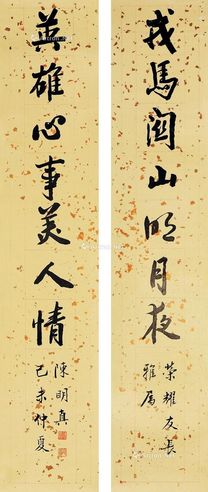 戎馬關山明月夜
榮耀友長
雅属
英雄心事美人情
陳明真
己未仲夏